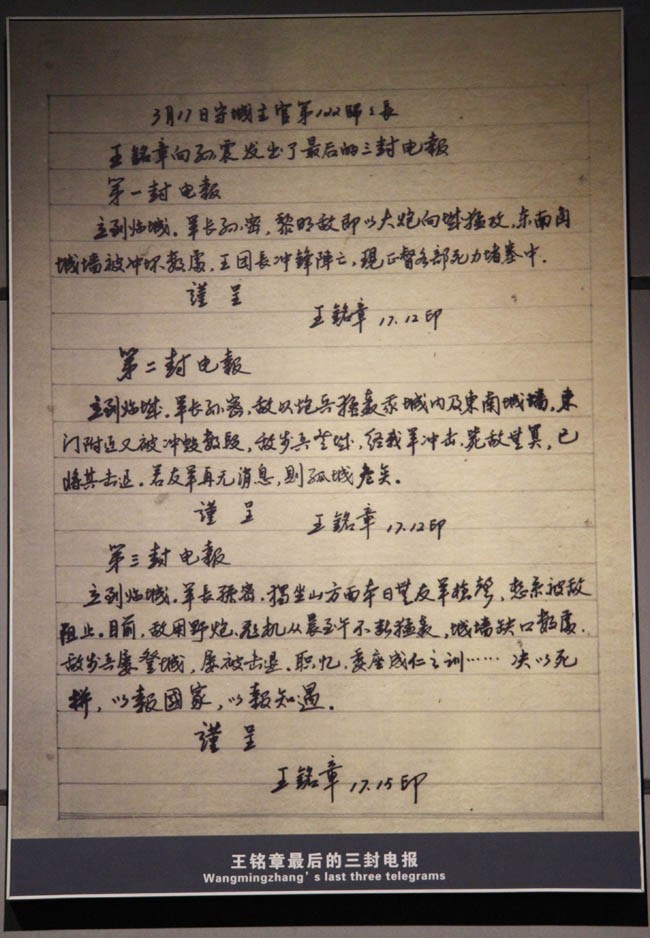 3月17日守城主官第122师之長
王銘章向孙震发出了最后的三封电報
第一封电報
立到临城,军长孙密,黎明敌即以大炮向城猛攻,东南角
城墙被冲坏数處.王团長冲鋒陣亡,现正督各部死力堵塞中.
謹呈
王銘章 17.12印
第二封电報
立到临城.军长孙密,敌以炮兵猛轰我城内及東南城墙,東
门附近又被冲毁数段,敌步兵登城,经我军冲击,毙敌无算,已
将其击退.若友军再无消息,则孤城危矣.
謹呈
王銘章 17.12印
第三封电報
立到临城.军長孫密.独坐山方面本日无友军槍聲,想系被敌
阻止.目前,敌用野炮、飛机从晨至午不断猛轰,城墙缺口数處.
敌步兵屡登城,屡被击退.职忆,委座成仁之训……决以死
拼,以報國家,以報知遇.
謹呈
王銘章 17.15印
王铭章最后的三封电报
Wangmingzhang's last three telegrams